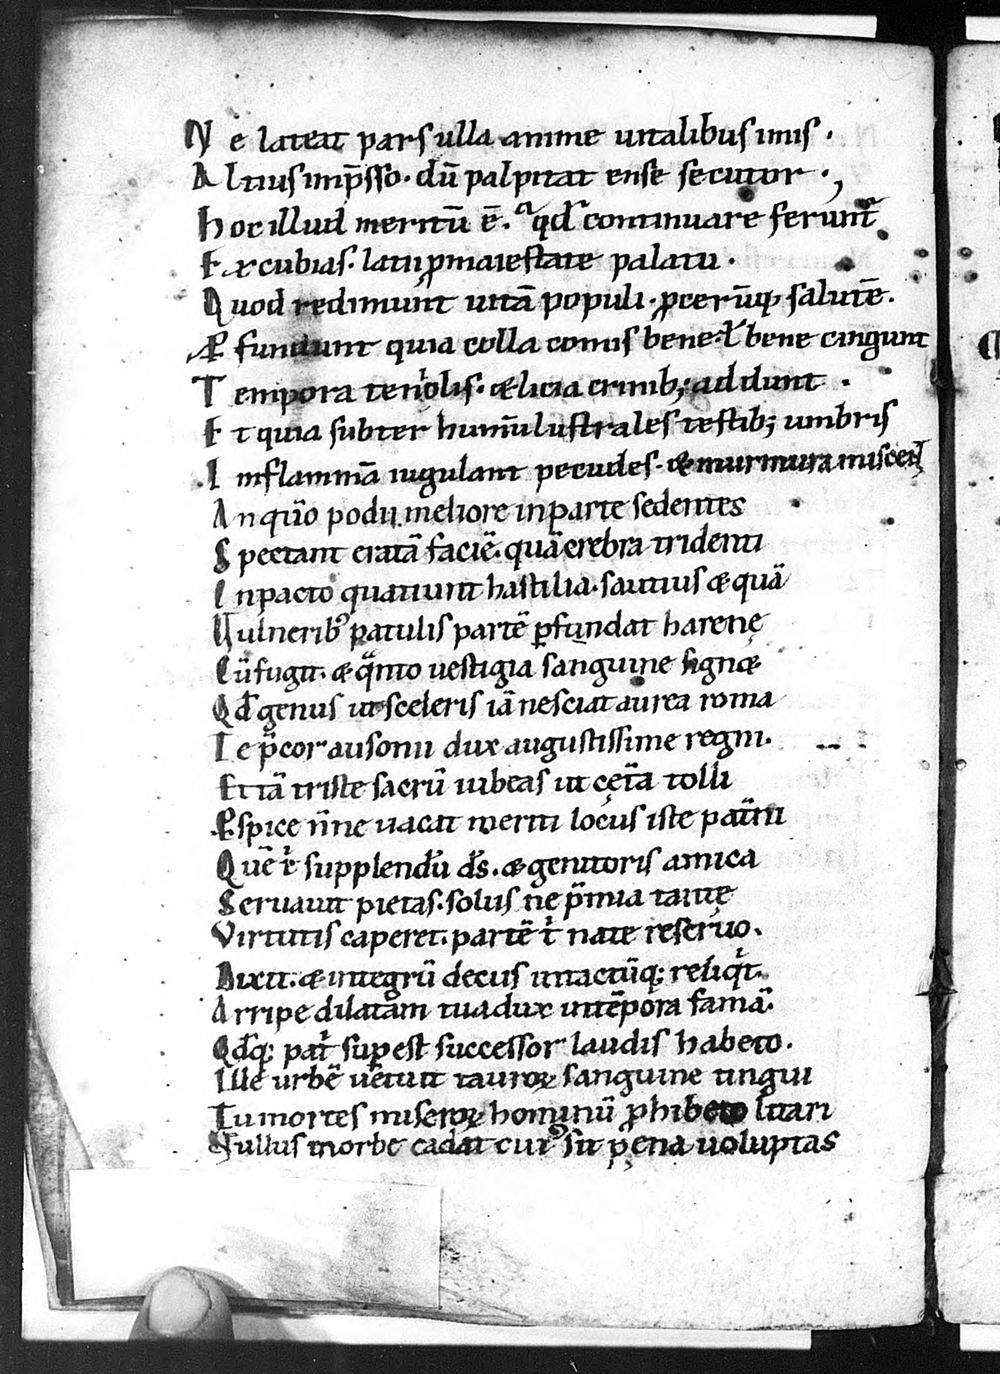 Ne lateat pars ulla anime uitalibus imis.
Altius imp̄sso. dū palpitat ense secutor.,
hoc illud meritū ē. qd̄ continuare ferunt᷑
Excubias. latii p̱maiestate palatii.
Quod redimunt uitā populi. ꝓcerūq; salutē.
Ac fundunt quia colla comis bene. ł bene cingunt
Tempora teniolis. ⁊licia crinib; addunt.
Et quia subter humū lustrales testib; umbris
Inflammā iugulant pecudes. ⁊murmura miscent
An qūo podii meliore inparte sedentes
Spectant eratā faciē. quā crebra tridenti
Inpacto quatiunt hastilia. saucius ⁊ quā
Vulnerib; patulis partē ꝑfundat harenę
Cū fugit. ⁊ qͣnto uestigia sanguine signæ
Qd̄ genus ut sceleris iā nesciat aurea roma
Te p̄cor ausonii dux augustissime regni.
Et iā triste sacrū iubeas ut cęt̄a tolli
Rspice ñne uacat meriti locus iste pat̄ni
Quē t̾ supplendū ds̄. ⁊ genitoris amica
Seruauit pietas. solus nē p̄mia tantę
Virtutis caperet. partē t̾ nate reseruo.
Dixit. ⁊ integrū decus intactūq; reliqͥt.
Arripe dilatam tua dux intēpora famā.
Qd̄q; pat̾ sup̱est successor laudis habeto.
Ille urbē uetuit tauroꝝ sanguine tingui
Tu mortes miseroꝝ hominū ꝓhibeto litari
Nullus inorbe cadat cui᷒ sit pęna uoluptas